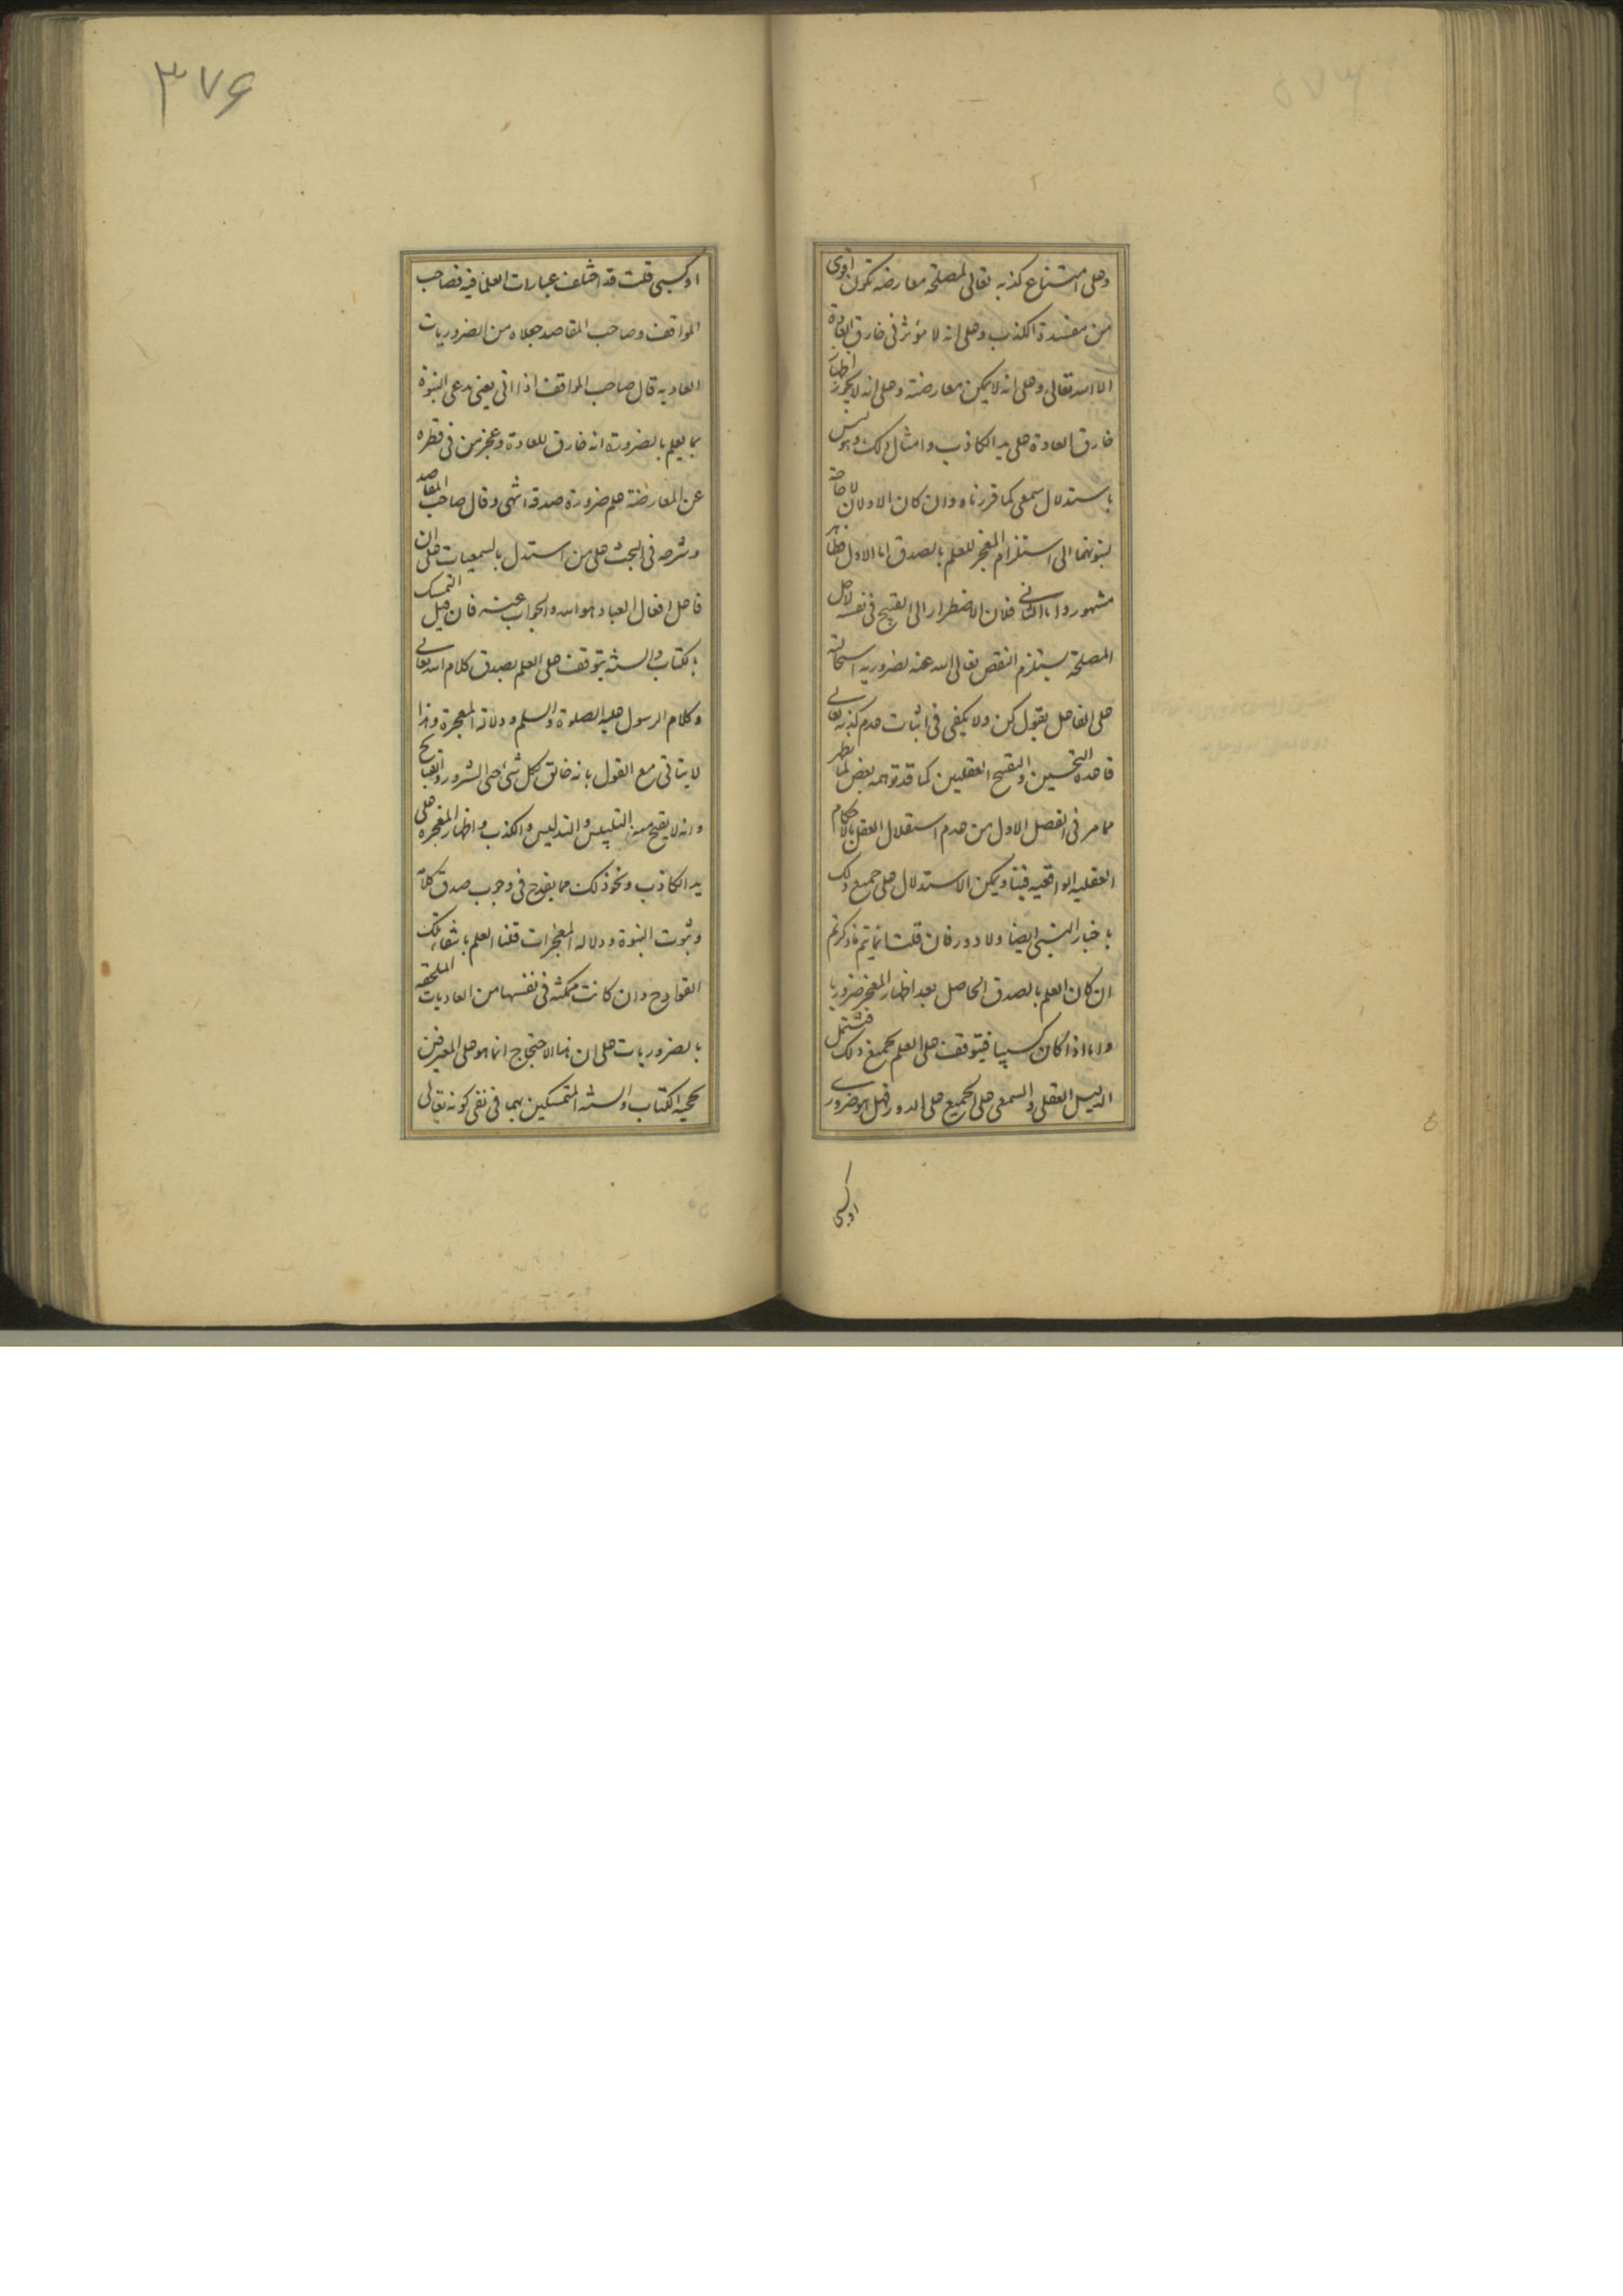 وعلى امتناع كذبه تعالى لمصلحة معارضه تكون اقوى
من مفسدة الكذب وعلى انه لا مؤثر فى خارق العادة
الا الله تعالى وعلى انه لا يمكن معارضته وعلى انه لا يجوز اظهار
خارق العادة على يد الكاذب وامثال ذلك وهو ليس
باستدلال سمعى كما قررناه وان كان الاولان لا حاجة
لثبوتهما الى استلزام المعجز للعلم بالصدق اما الاول فظاهر
مشهور واما الثانى فلان الاضطرار الى القبيح فى نفسه لاجل
المصلحة يستلزم النقص تعالى الله عنه لضرورية استحالته
على الفاعل بقول كن ولا يكفى فى اثبات عدم كذبه تعالى
قاعدة التحسين والتقبيح العقليين كما قد توهمه بعض لما ظهر
مما مر فى الفصل الاول من عدم استقلال العقل بالاحكام
العقليه الواقعيه فينا ويمكن الاستدلال على جميع ذلك
باخبار النبى ايضا ولا دور فان قلت انما يتم ما ذكرتم
ان كان العلم بالصدق الحاصل بعد اظهار المعجز ضروريا
واما اذا كان كسبيا فيتوقف على العلم بجميع ذلك فيشتمل
الدليل العقلى والسمعى على الجميع على الدور فهل هو ضرورى
او كسبى
٣٧۶
او كسبى قلت قد اختلف عبارات العلما فيه فصاحب
المواقف وصاحب المقاصد جعلاه من الضروريات
العاديه قال صاحب المواقف اذا اتى يعنى مدعى النبوة
بما يعلم بالضرورة انه خارق للعادة وعجز من فى قطره
عن المعارضة علم ضرورة صدقه انتهى وقال صاحب المقاصد
وشرحه فى البحث على من استدل بالسمعيات على ان
فاعل افعال العباد هو الله والجواب عنه فان قيل التمسك
بالكتاب والسنه يتوقف على العلم بصدق كلام الله تعالى
وكلام الرسول عليه الصلوة والسلم ودلالة المعجزة وهذا
لا يتاتى مع القول بانه خالق كل شئ حتى الشرور والقبايح
وانه لا يقبح منه التلبيس والتدليس والكذب واظهار المعجزه على
يد الكاذب ونحو ذلك مما يقدح فى وجوب صدق كلامه
وثبوت النبوة ودلاله المعجزات قلنا العلم بانتفاء تلك
القوادح وان كانت ممكنه فى نفسها من العاديات الملحقه
بالضروريات على ان هذا الاحتجاج انما هو على المعترفين
بحجيه الكتاب والسنه المتمسكين بهما فى نفى كونه تعالى